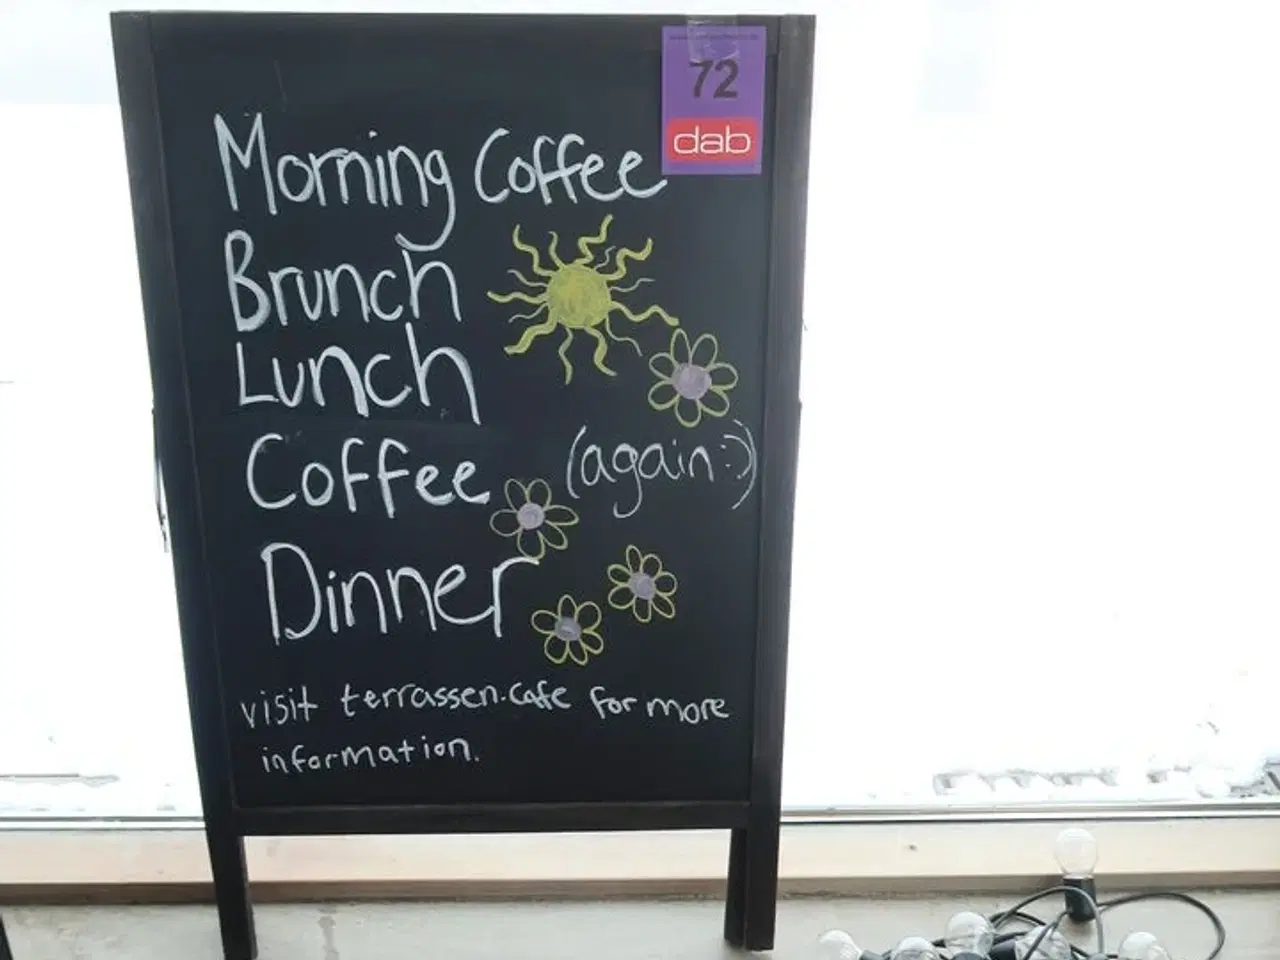 72
dab
Morning Coffee
Brunch
Lunch
Coffee (again:)
Dinner
visit terrassen.cafe for more
information.